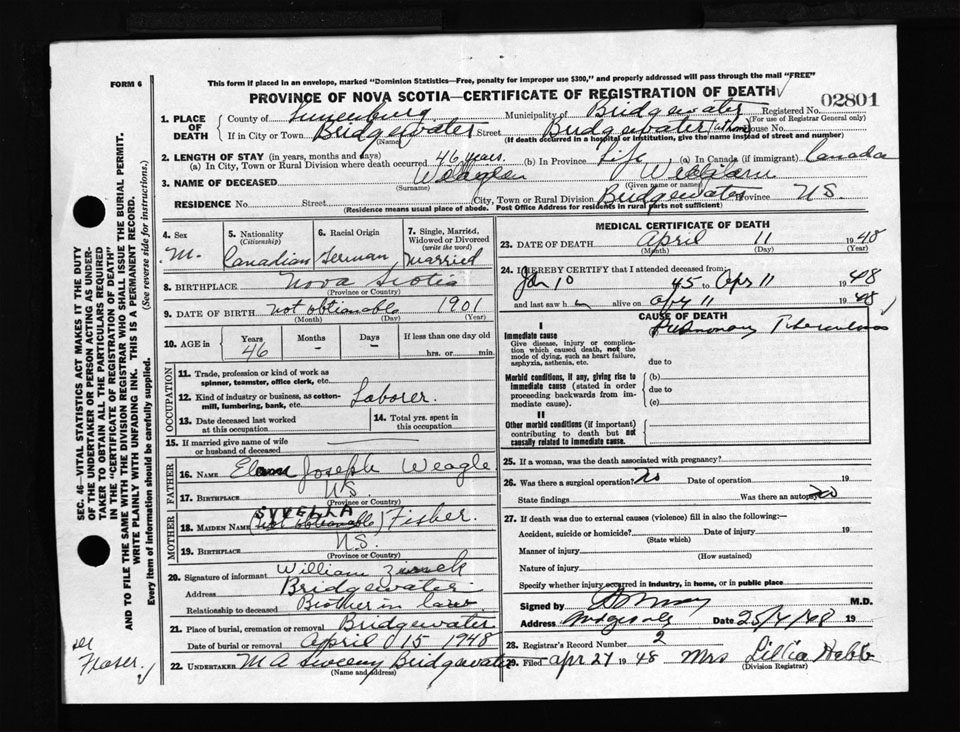 FORM 6
This form if placed in an envelope, marked "Dominion Statistics—Free, penalty for improper use $300," and properly addressed will pass through the mail "FREE"
PROVINCE OF NOVA SCOTIA—CERTIFICATE OF REGISTRATION OF DEATH
02801
1. PLACE OF DEATH
County of Lunenburg Municipality of Bridgewater Registered No.
(For use of Registrar General only)
If in City or Town Bridgewater Street Bridgewater (at home) House No.
(Name) (If death occurred in a hospital or institution, give the name instead of street and number)
2. LENGTH OF STAY (in years, months and days)
(a) In City, Town or Rural Division where death occurred 46 years. (b) In Province Life (a) In Canada (if immigrant) Canada
3. NAME OF DECEASED William
(Surname) (Given name or names)
RESIDENCE No. Street City, Town or Rural Division Bridgewater Province NS.
(Residence means usual place of abode. Post Office Address for residents in rural parts not sufficient)
4. Sex M.
5. Nationality (Citizenship) Canadian
6. Racial Origin German
7. Single, Married, Widowed or Divorced (write the word) Married
8. BIRTHPLACE Nova Scotia
(Province or Country)
9. DATE OF BIRTH not obtianable 1901
(Month) (Day) (Year)
10. AGE in Years 46 Months – Days – If less than one day old
hrs. or min.
OCCUPATION
11. Trade, profession or kind of work as spinner, teamster, office clerk, etc.
12. Kind of industry or business, as cotton-mill, lumbering, bank, etc. Laborer.
13. Date deceased last worked at this occupation
14. Total yrs. spent in this occupation
15. If married give name of wife or husband of deceased
FATHER
16. NAME Joseph Weagle
17. BIRTHPLACE NS.
(Province or Country)
MOTHER
18. MAIDEN NAME (not obtianable) Fisher.
19. BIRTHPLACE NS.
(Province or Country)
20. Signature of informant William
Address Bridgewater
Relationship to deceased Brother in law
21. Place of burial, cremation or removal Bridgewater
Date of burial or removal April 15 1948
22. UNDERTAKER M A Sweeny Bridgewater
(Name and address)
MEDICAL CERTIFICATE OF DEATH
23. DATE OF DEATH April 11 1948
(Month) (Day)
24. I HEREBY CERTIFY that I attended deceased from:
Jan 10 45 to Apr 11 1948
and last saw h im alive on Apr 11 1948
CAUSE OF DEATH
I
Immediate cause Pulmonary Tuberculosis
Give disease, injury or complication which caused death, not the mode of dying, such as heart failure, asphyxia, asthenia, etc.
due to
Morbid conditions, if any, giving rise to immediate cause (stated in order proceeding backwards from immediate cause).
(b)
due to
(c)
II
Other morbid conditions (if important) contributing to death but not causally related to immediate cause.
25. If a woman, was the death associated with pregnancy?
26. Was there a surgical operation? No Date of operation 19
State findings Was there an autopsy? No
27. If death was due to external causes (violence) fill in also the following:—
Accident, suicide or homicide? Date of injury 19
(State which)
Manner of injury
(How sustained)
Nature of injury
Specify whether injury occurred in industry, in home, or in public place
Signed by M.D.
Address Date 25/4/48 19
28. Registrar's Record Number 2
29. Filed Apr 27 1948 Mrs Lillia Hebb
(Division Registrar)
SEC. 46—VITAL STATISTICS ACT MAKES IT THE DUTY
OF THE UNDERTAKER OR PERSON ACTING AS UNDER-
TAKER TO OBTAIN ALL THE PARTICULARS REQUIRED
IN THE "CERTIFICATE OF REGISTRATION OF DEATH"
AND TO FILE THE SAME WITH THE DIVISION REGISTRAR WHO SHALL ISSUE THE BURIAL PERMIT.
WRITE PLAINLY WITH UNFADING INK. THIS IS A PERMANENT RECORD.
Every item of information should be carefully supplied. (See reverse side for instructions.)
Fraser.